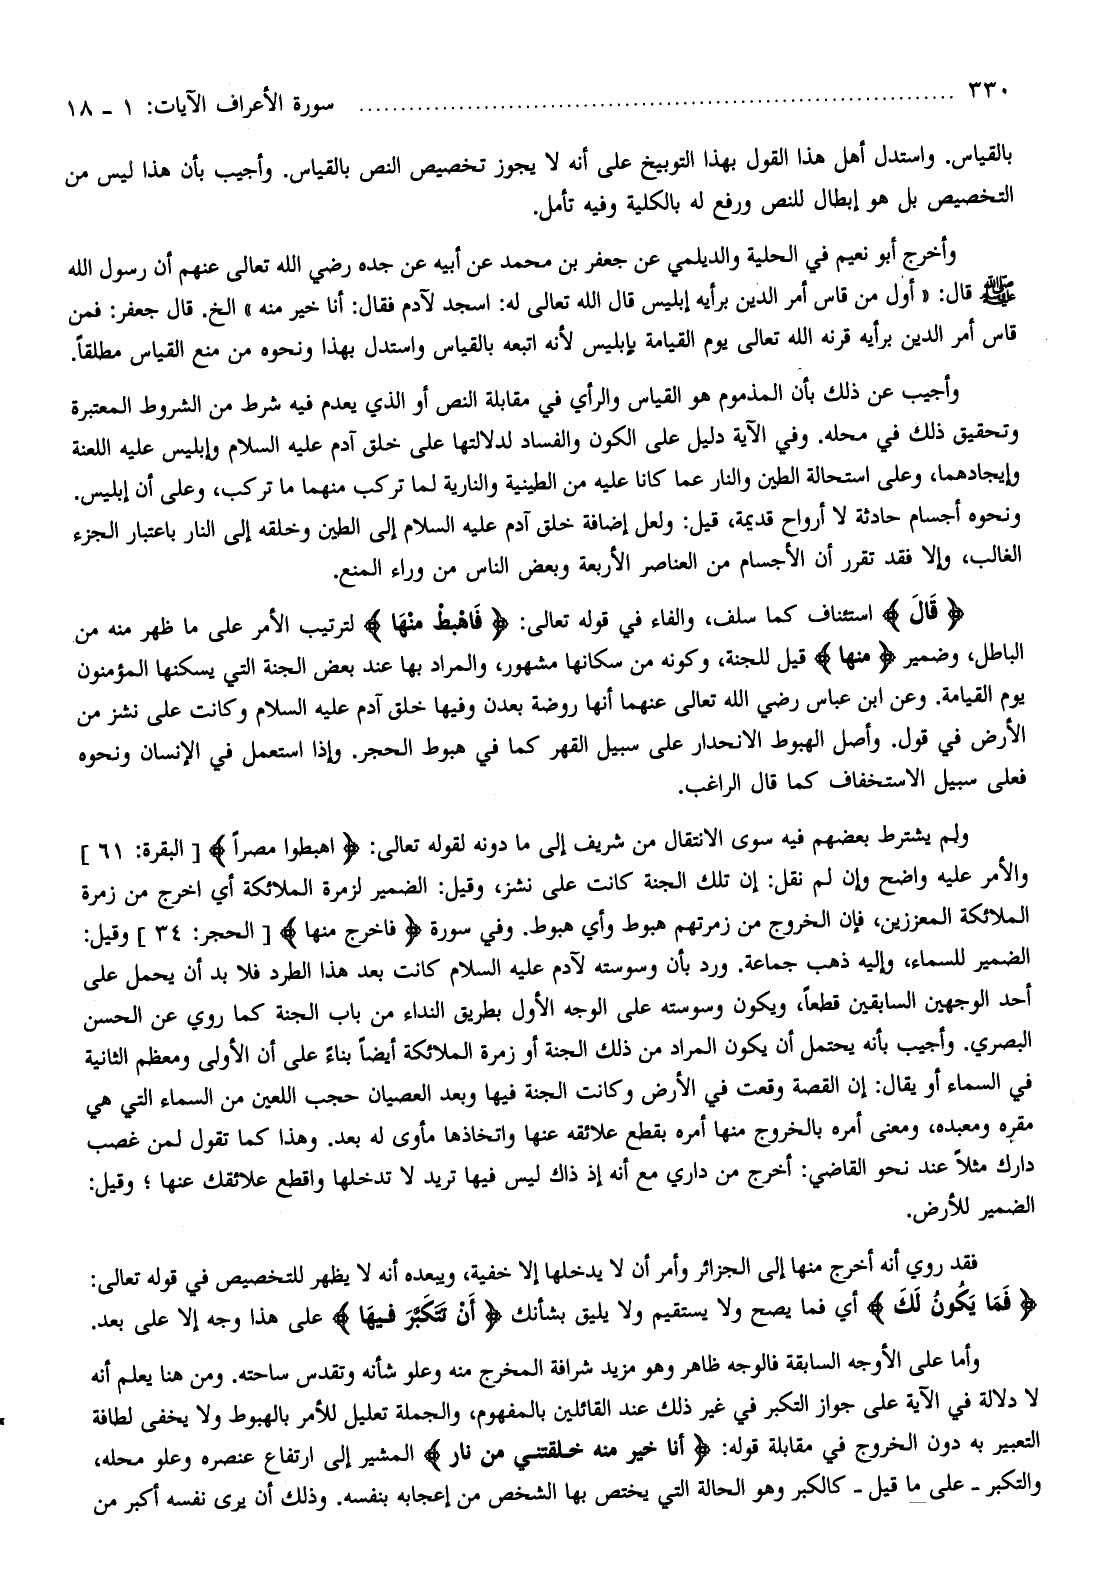 ٣٣٠ ........ سورة الأعراف الآيات: ١ - ١٨
بالقياس. واستدل أهل هذا القول بهذا التوبيخ على أنه لا يجوز تخصيص النص بالقياس. وأجيب بأن هذا ليس من
التخصيص بل هو إبطال للنص ورفع له بالكلية وفيه تأمل.
وأخرج أبو نعيم في الحلية والديلمي عن جعفر بن محمد عن أبيه عن جده رضي الله تعالى عنهم أن رسول الله
ﷺ قال: « أول من قاس أمر الدين برأيه إبليس قال الله تعالى له: اسجد لآدم فقال: أنا خير منه » الخ. قال جعفر: فمن
قاس أمر الدين برأيه قرنه الله تعالى يوم القيامة بإبليس لأنه اتبعه بالقياس واستدل بهذا ونحوه من منع القياس مطلقاً.
وأجيب عن ذلك بأن المذموم هو القياس والرأي في مقابلة النص أو الذي يعدم فيه شرط من الشروط المعتبرة
وتحقيق ذلك في محله. وفي الآية دليل على الكون والفساد لدلالتها على خلق آدم عليه السلام وإبليس عليه اللعنة
وإيجادهما، وعلى استحالة الطين والنار عما كانا عليه من الطينية والنارية لما تركب منهما ما تركب، وعلى أن إبليس.
ونحوه أجسام حادثة لا أرواح قديمة، قيل: ولعل إضافة خلق آدم عليه السلام إلى الطين وخلقه إلى النار باعتبار الجزء
الغالب، وإلا فقد تقرر أن الأجسام من العناصر الأربعة وبعض الناس من وراء المنع.
﴿ قَالَ ﴾ استئناف كما سلف، والفاء في قوله تعالى: ﴿ فَاهْبِطْ مِنْهَا ﴾ لترتيب الأمر على ما ظهر منه من
الباطل، وضمير ﴿ منها ﴾ قيل للجنة، وكونه من سكانها مشهور، والمراد بها عند بعض الجنة التي يسكنها المؤمنون
يوم القيامة. وعن ابن عباس رضي الله تعالى عنهما أنها روضة بعدن وفيها خلق آدم عليه السلام وكانت على نشز من
الأرض في قول. وأصل الهبوط الانحدار على سبيل القهر كما في هبوط الحجر. وإذا استعمل في الإنسان ونحوه
فعلى سبيل الاستخفاف كما قال الراغب.
ولم يشترط بعضهم فيه سوى الانتقال من شريف إلى ما دونه لقوله تعالى: ﴿ اهبطوا مصراً ﴾ [ البقرة: ٦١ ]
والأمر عليه واضح وإن لم نقل: إن تلك الجنة كانت على نشز، وقيل: الضمير لزمرة الملائكة أي اخرج من زمرة
الملائكة المعززين، فإن الخروج من زمرتهم هبوط وأي هبوط. وفي سورة ﴿ فاخرج منها ﴾ [ الحجر: ٣٤ ] وقيل:
الضمير للسماء، وإليه ذهب جماعة. ورد بأن وسوسته لآدم عليه السلام كانت بعد هذا الطرد فلا بد أن يحمل على
أحد الوجهين السابقين قطعاً، ويكون وسوسته على الوجه الأول بطريق النداء من باب الجنة كما روي عن الحسن
البصري. وأجيب بأنه يحتمل أن يكون المراد من ذلك الجنة أو زمرة الملائكة أيضاً بناءً على أن الأولى ومعظم الثانية
في السماء أو يقال: إن القصة وقعت في الأرض وكانت الجنة فيها وبعد العصيان حجب اللعين من السماء التي هي
مقره ومعبده، ومعنى أمره بالخروج منها أمره بقطع علائقه عنها واتخاذها مأوى له بعد. وهذا كما تقول لمن غصب
دارك مثلاً عند نحو القاضي: أخرج من داري مع أنه إذ ذاك ليس فيها تريد لا تدخلها واقطع علائقك عنها ؛ وقيل:
الضمير للأرض.
فقد روي أنه أخرج منها إلى الجزائر وأمر أن لا يدخلها إلا خفية، ويبعده أنه لا يظهر للتخصيص في قوله تعالى:
﴿ فَمَا يَكُونُ لَكَ ﴾ أي فما يصح ولا يستقيم ولا يليق بشأنك ﴿ أَنْ تَتَكَبَّرَ فِيهَا ﴾ على هذا وجه إلا على بعد.
وأما على الأوجه السابقة فالوجه ظاهر وهو مزيد شرافة المخرج منه وعلو شأنه وتقدس ساحته. ومن هنا يعلم أنه
لا دلالة في الآية على جواز التكبر في غير ذلك عند القائلين بالمفهوم، والجملة تعليل للأمر بالهبوط ولا يخفى لطافة
التعبير به دون الخروج في مقابلة قوله: ﴿ أنا خير منه خلقتني من نار ﴾ المشير إلى ارتفاع عنصره وعلو محله،
والتكبر - على ما قيل - كالكبر وهو الحالة التي يختص بها الشخص من إعجابه بنفسه. وذلك أن يرى نفسه أكبر من